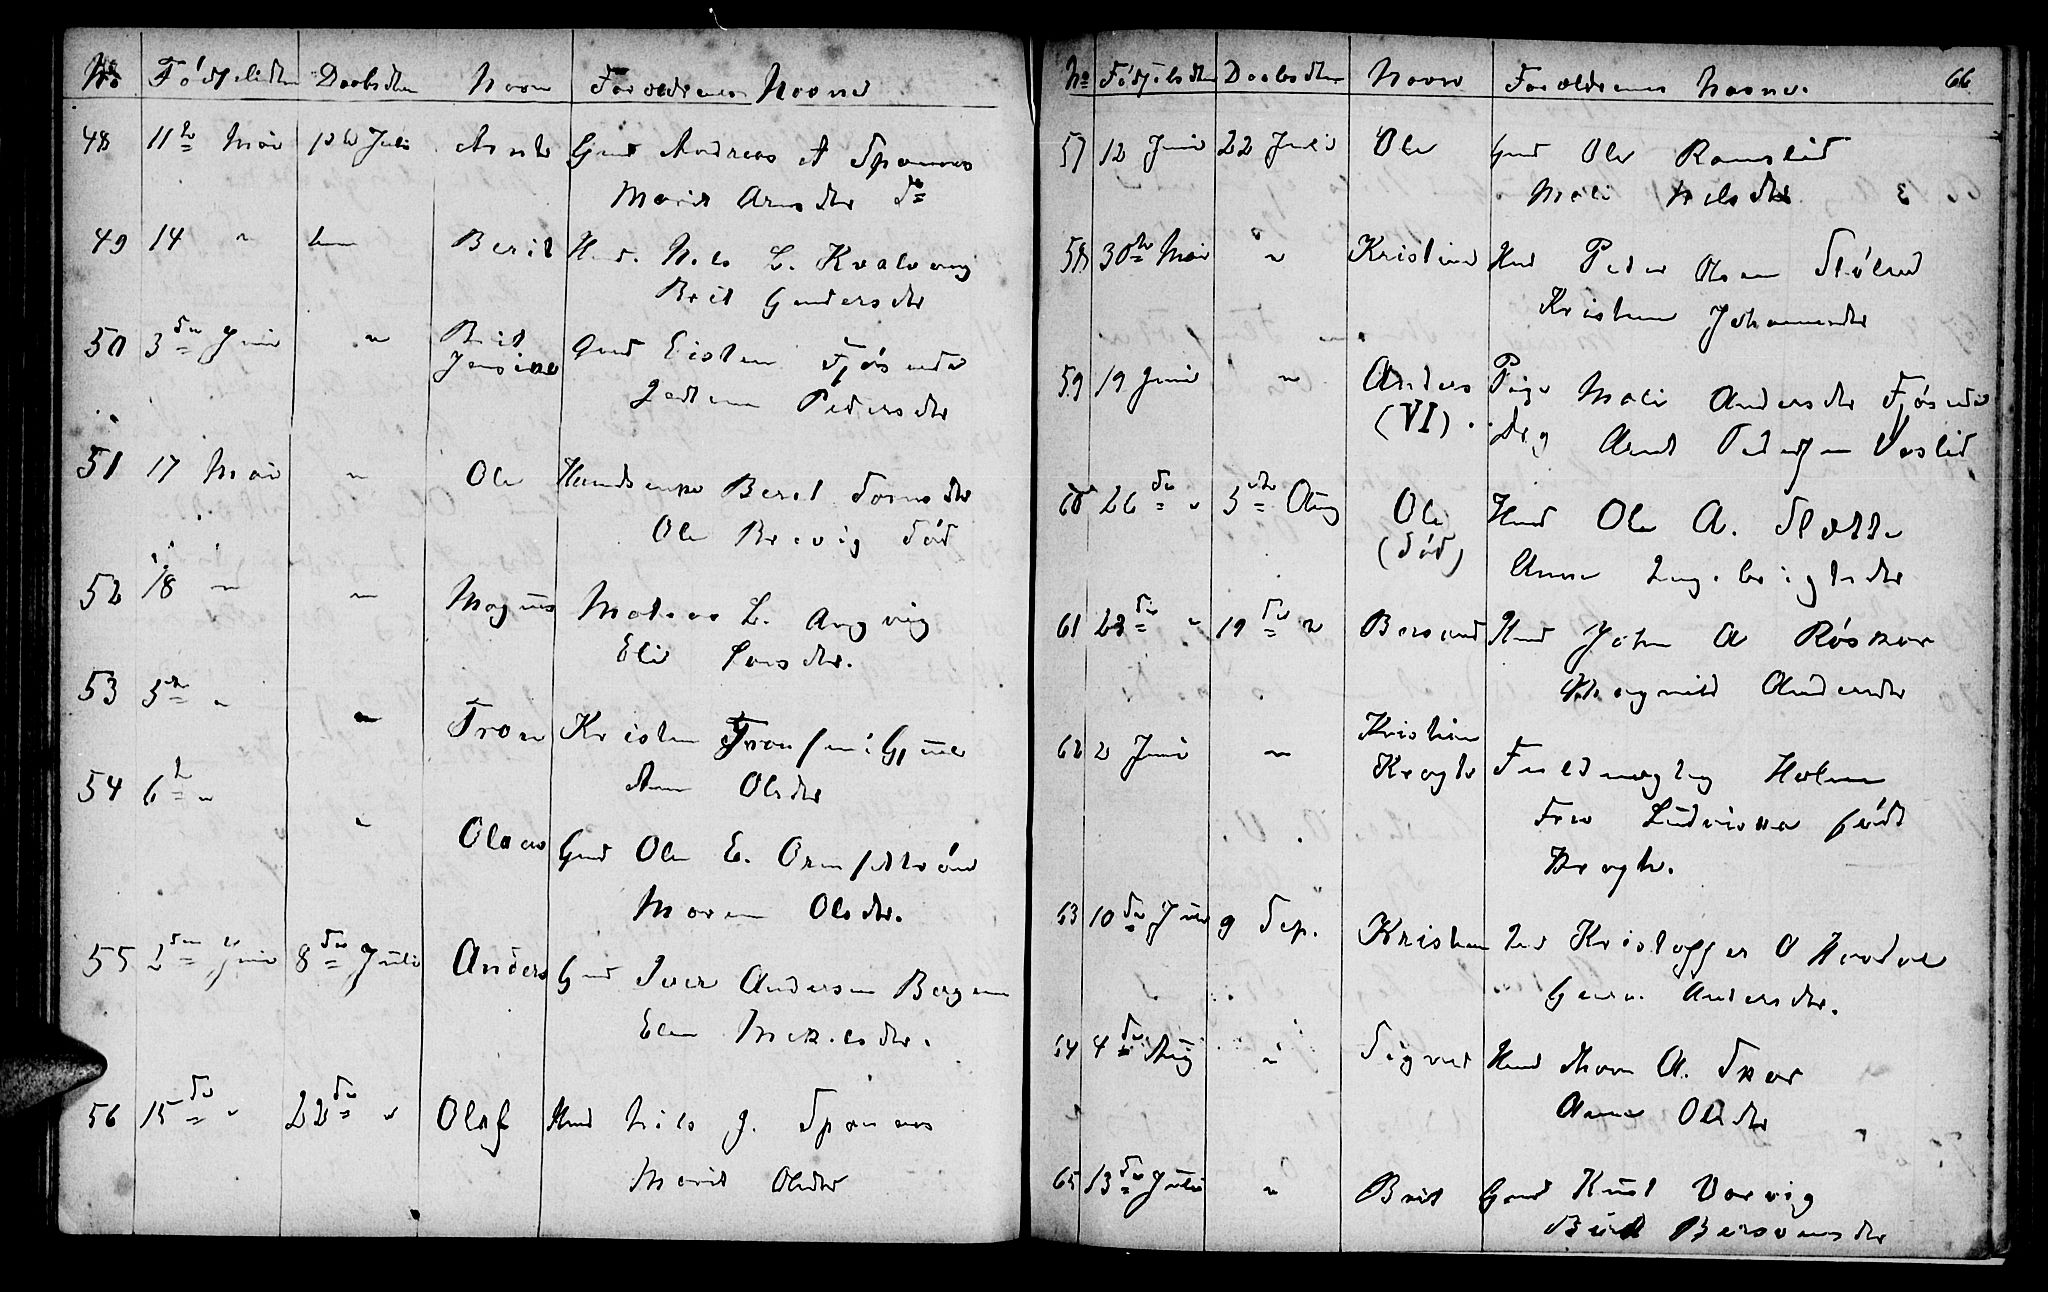 No Fødselsdtm Daabsdtm Navn Forældrenes Navne
48 11te Mai 1ste Juli Arnt Gmd Andreas A Spannes
Marit Arnsdtr ds
49 14 " " Berit Hmd. Nils L. Kvalvaag
Brit Gundersdtr
50 3die Juni " Brit Gmd Eisten Fjøseide
Jensine Pedersdtr
51 17 Mai " Ole Huusmenke Berit Tornsdtr
Ole Brevig Død
52 18 " " Magnus Mateas L. Angvig
Eli Larsdtr.
53 5te " " Tron Kristen Tronsen Gjul
Ane Olsdtr
54 6te " " Olaus Gmd Ole E. Ormsettrød
Maren Olsdtr.
55 2den Juni 8de Juli Anders Gmd Iver Andersen Bergem
Elen Mikkelsdtr.
56 15de " 22de " Olaf Hmd Nils J. Spannes
Marit Olsdtr
No Fødselsdtm Daabsdtm Navn Forældrenes Navne. 66
57 12 Juni 22 Juli Ole Gmd Ole Ramslid
Mali Nilsdtr E
58 30te Mai " Kristine Hmd Peder Olsen
Kristen Johannesdtr
59 19 Juni " Anders Pige Mali Andersdtr Fjøseide
(VI) . Drg Arnt Pedersen Vaslid
60 26de " 5te Aug Ole Hmd Ole A. Slette
(Død) Anne Ingebrigtsdtr
61 28de " 19de " Beresend Hmd John A Røskar
Ragnild Andersdtr
62 2 Juni " Kristian Fuldmægtig Holm
Krogh Fru Ludvikka født
Krogh.
63 10de Juli 9 Sep. Kristen Kristoffer O
Guru. Andersdtr.
64 4de Aug " Signe Hmd A. Skar
Anne Olsdtr "
65 13de Juli " Brit Gmd Knut Varvig
Berit Bersvensdtr